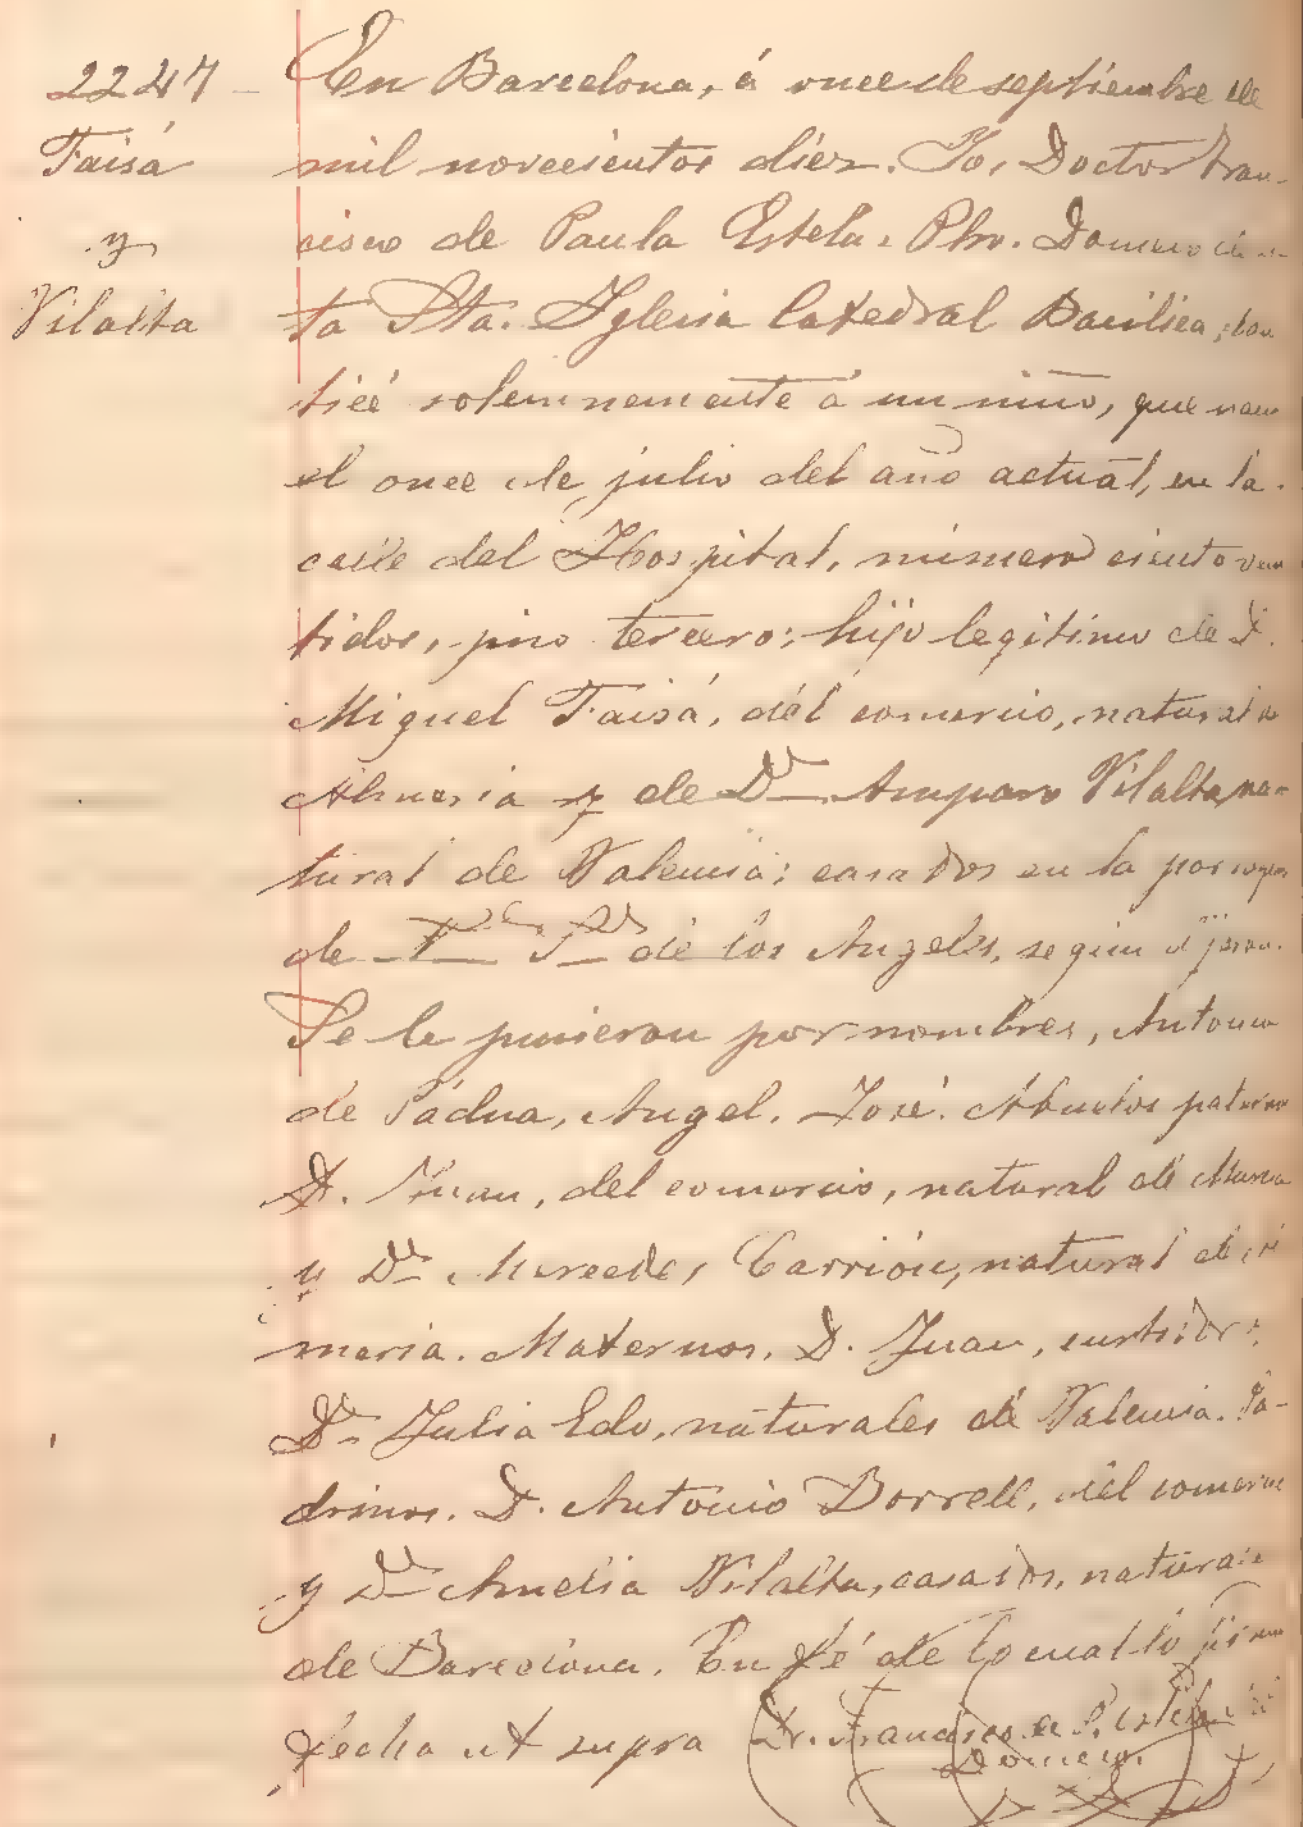 2247
Faisá
y
Vilalta
En Barcelona, á once de septiembre de
mil novecientos diez. Yo, Doctor Fran-
cisco de Paula Estela, Pbro. Domero de es-
ta Sta. Iglesia Catedral Basilica, bau
ticé solemnemente á un niño, que nació
el once de julio del año actual, en la
calle del Hospital, número ciento vein
tidos, piso tercero; hijo legitimo de D.
Miguel Faisá, del comercio, natural de
Almeria y de Dña Amparo Vilalta, na-
tural de Valencia; casados en la parroquia
de Ntra Sra de los Angeles, segun dijeron.
Se le pusieron por nombres, Antonio
de Pádua, Angel, José. Abuelos paternos
D. Juan, del comercio, natural de Murcia
y Dña Mercedes Carrión, natural de Al
meria. Maternos, D. Juan, curtidor y
Dña Julia Edo, naturales de Valencia. Pa-
drinos. D. Antonio Borrell, del comercio
y Dña Amelia Vilalta, casados, naturales
de Barcelona. En fé de lo cual lo firmo
fecha ut supra Dr. Francisco de P. Estela
Domero.